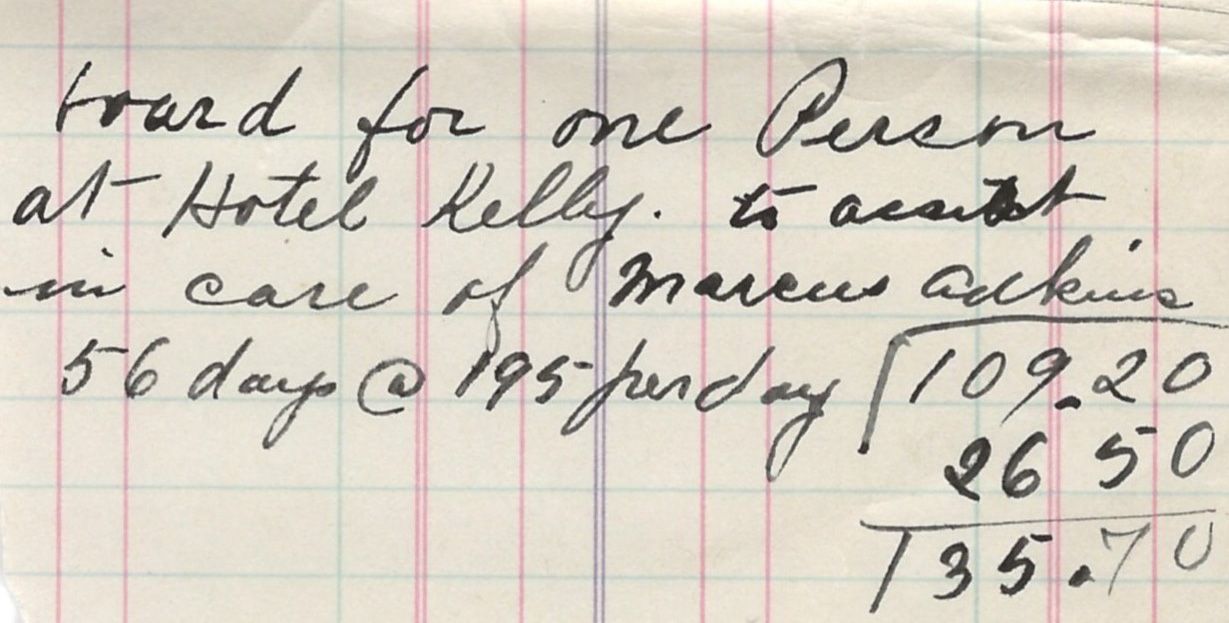 board for one Person
at Hotel Kelly. to assist
in care of Marcus Adkins
56 days @ 195 per day 109.20
26 50
135.70